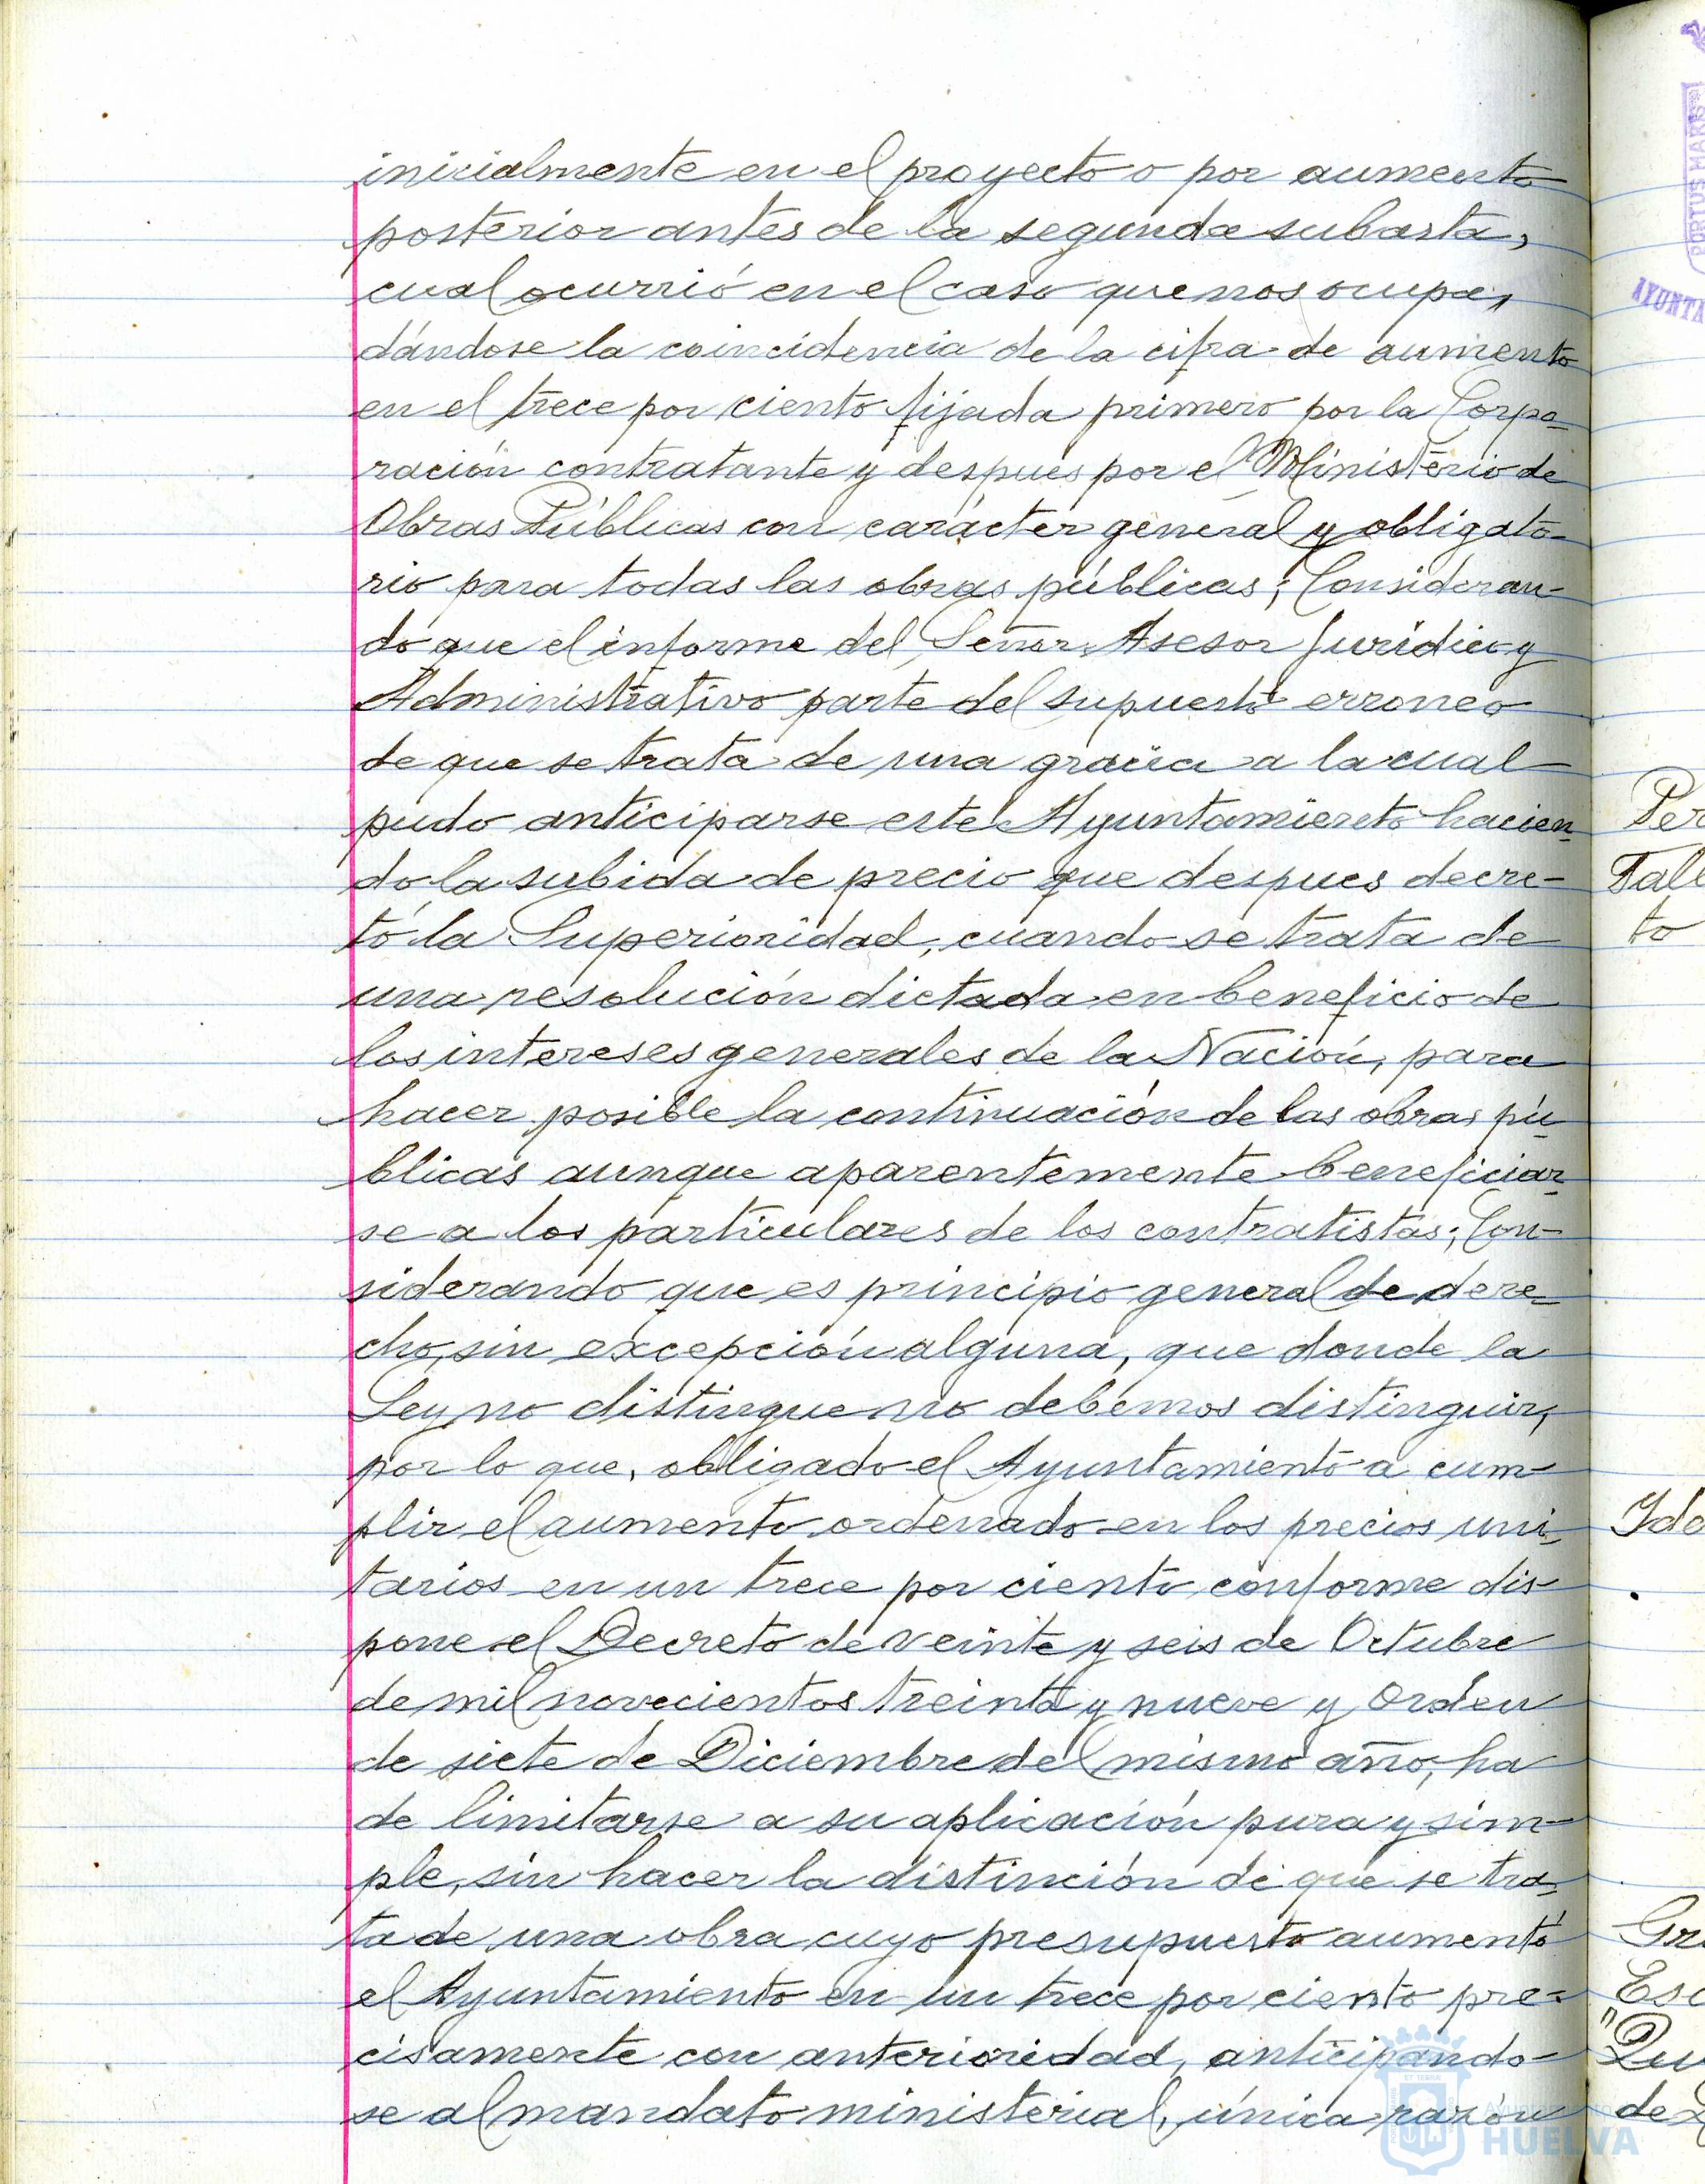 inicialmente en el proyecto o por aumento
posterior antes de la segunda subasta,
cual ocurrió en el caso que nos ocupa,
dándose la coincidencia de la cifra de aumento
en el trece por ciento fijada primero por la Corpo-
ración contratante y despues por el Ministerio de
Obras Públicas con carácter general y obligato-
rio para todas las obras públicas; Consideran-
do que el informe del Señor Asesor Jurídico y
Administrativo parte del supuesto erroneo
de que se trata de una gracia a la cual
pudo anticiparse este Ayuntamiento hacien-
do la subida de precio que despues decre-
tó la Superioridad, cuando se trata de
una resolución dictada en beneficio de
los intereses generales de la Nación, para
hacer posible la continuación de las obras pú-
blicas aunque aparentemente beneficiar-
se a los particulares de los contratistas; Con-
siderando que es principio general de dere-
cho, sin excepción alguna, que donde la
Ley no distingue no debemos distinguir,
por lo que, obligado el Ayuntamiento a cum-
plir el aumento ordenado en los precios uni-
tarios en un trece por ciento conforme dis-
pone el Decreto de veinte y seis de Octubre
de mil novecientos treinta y nueve y Orden
de siete de Diciembre del mismo año, ha
de limitarse a su aplicación pura y sim-
ple, sin hacer la distinción de que se tra-
ta de una obra cuyo presupuesto aumentó
el Ayuntamiento en un trece por ciento pre-
cisamente con anterioridad, anticipando-
se al mandato ministerial, única razón
PORTUS MARIS
AYUNTA
Per
Fall
to
Ide
Gra
Esc
"Qu
de
HUELVA